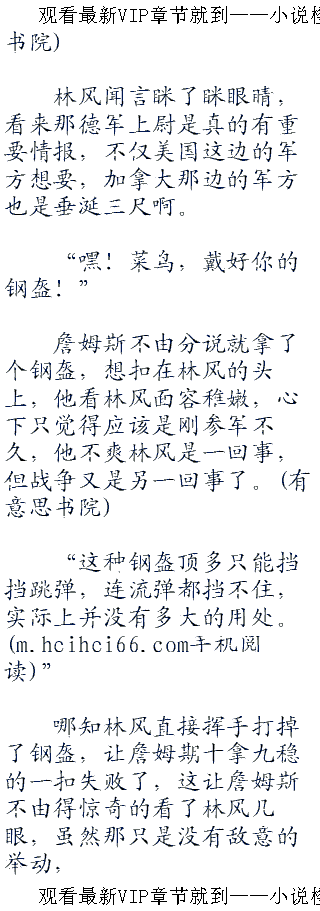 观看最新VIP章节就到——小说楼
书院)
林风闻言眯了眯眼睛，
看来那德军上尉是真的有重
要情报，不仅美国这边的军
方想要，加拿大那边的军方
也是垂涎三尺啊。
“嘿！菜鸟，戴好你的
钢盔！”
詹姆斯不由分说就拿了
个钢盔，想扣在林风的头
上，他看林风面容稚嫩，心
下只觉得应该是刚参军不
久，他不爽林风是一回事，
但战争又是另一回事了。(有
意思书院)
“这种钢盔顶多只能挡
挡跳弹，连流弹都挡不住，
实际上并没有多大的用处。
(m.hcihci66.com手机阅
读)”
哪知林风直接挥手打掉
了钢盔，让詹姆斯十拿九稳
的一扣失败了，这让詹姆斯
不由得惊奇的看了林风几
眼，虽然那只是没有敌意的
举动，
观看最新VIP章节就到——小说楼